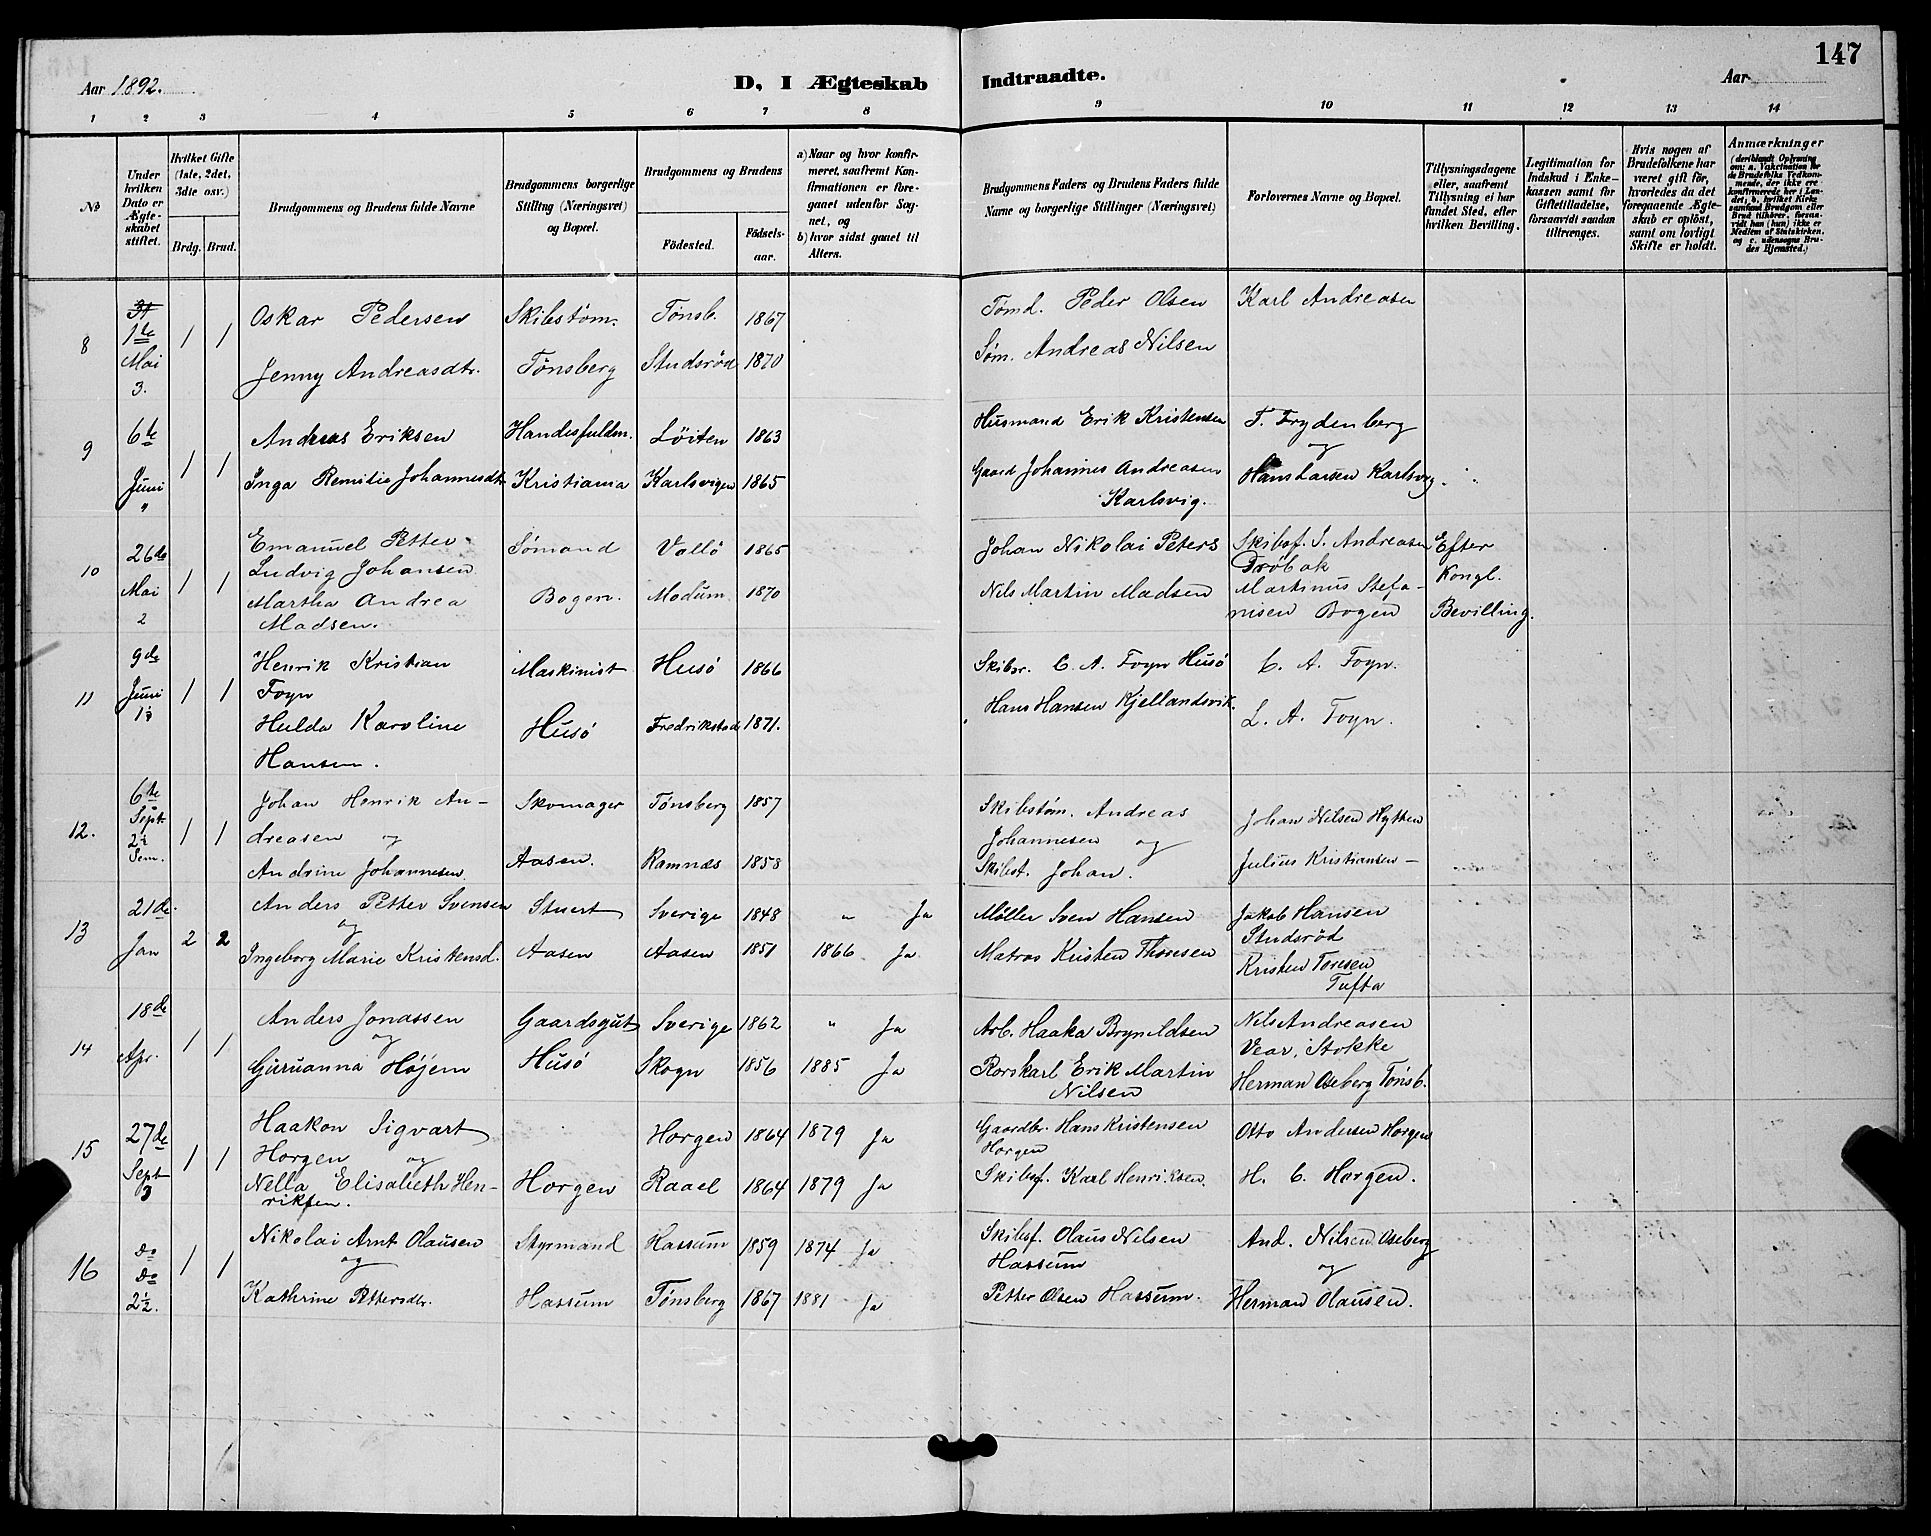 147
Aar 1892.
D, I Ægteskab Indtraadte.
Aar
1 2 3 4 5 6 7 8 9 10 11 12 13 14
No
Under hvilken Dato er Ægteskabet stiftet.
Hvilket Gifte (1ste, 2det, 3die osv.)
Brdg. Brud.
Brudgommens og Brudens fulde Navne
Brudgommens borgerlige Stilling (Næringsvei) og Bopæl.
Brudgommens og Brudens
Födested. Födsels-aar.
a) Naar og hvor konfirmeret, saafremt Konfirmationen er foregaaet udenfor Sognet, og
b) hvor sidst gaaet til Alters.
Brudgommens Faders og Brudens Faders fulde Navne og borgerlige Stillinger (Næringsvei)
Forlovernes Navne og Bopæl.
Tillysningsdagene eller, saafremt Tillysning ei har fundet Sted, efter hvilken Bevilling.
Legitimation for Indskud i Enkekassen samt för Giftetilladelse, forsaavidt saadan tiltrænges.
Hvis nogen af Brudefolkene har været gift för, hvorledes da det foregaaende Ægteskab er oplöst, samt om lovligt Skifte er holdt.
Anmærkninger
8 1te Mai 3. 1 1
Oskar Pedersen Skibstøm. Tønsb. 1867 Tømd. Peder Olsen Karl Andreasen
Jenny Andreasdtr. Tønsberg Studsrød 1870 Søm. Andreas Nilsen
9 6te Juni " 1 1
Andreas Eriksen Løiten 1863 Husmand Erik Kristensen T. Frydenberg
og
Inga Johannesdtr Kristiania Karlsvigen 1865 Gaard Johannes Andreasen Hans Larsen Karlsvig.
Karlsvig.
10 26de Mai 2 1 1
Emanuel Petter Sømand Vallö 1865 Johan Nikolai Peters Skibsf. S. Andreasen Efter
Ludvig Johansen Drøbak Kongl.
Martha Andrea Bogen. Modum. 1870 Nils Martin Madsen Martinus Stefa-
Madsen. nisen Bogen Bevilling.
11 9de Juni 1 1
Henrik Kristian Maskinist Husö 1866 Skibsr. C. A. Foyn Husö C. A. Foyn.
Foyn
Hulda Karoline Husö Fredrikstad 1871. Hans Hansen Kjellandsvik. L. A. Foyn.
Hansen.
12. 6te Sept. 2½ Sem. 1 1
Johan Henrik An- Skomager Tønsberg 1857 Skibstøm. Andreas Johan Nilsen Hytten
dreasen og Johannesen og
Andrine Johannesen Aasen. Ramnæs 1858 Skibst. Johan. Julius Kristiansen -
13 21de Jan 2 2
Anders Petter Svensen Stuert Sverige 1848 " Ja Møller Sven Hansen Jakob Hansen
og Studsrød
Ingeborg Marie Kristensd. Aasen Aasen 1851 1866 Ja Matros Kristen Thoresen Kristen Toresen
Tufta
14 18de Apr. 1 1
Anders Jonassen Gaardsgut Sverige 1862 " Ja Arb. Haaka Brynildsen Nils Andreasen
og Vear, Stokke
Guruanna Höjem Husö Skogn 1856 1885 Ja Rorskarl Erik Martin Herman Oseberg Tönsb.
Nilsen
15 27de Sept 3 1 1
Haakon Sigvart Horgen 1864 1879 Ja Gaardbr. Hans Kristensen Otto Andersen Horgen
Horgen og Horgen
Nella Elisabeth Hen- Horgen Raael 1864 1879 Ja Skibsf. Karl Henriksen. H. C. Horgen.
riksen.
16 do do 2½. 1 1
Nikolai Arnt Olausen Styrmand Hassum 1859 1874 Ja Skibsf. Olaus Nilsen And. Nilsen Oseberg
og Hassum og
Kathrine Pettersdtr. Hassum Tönsberg 1867 1881 Ja Petter Olsen Hassum. Herman Olausen.